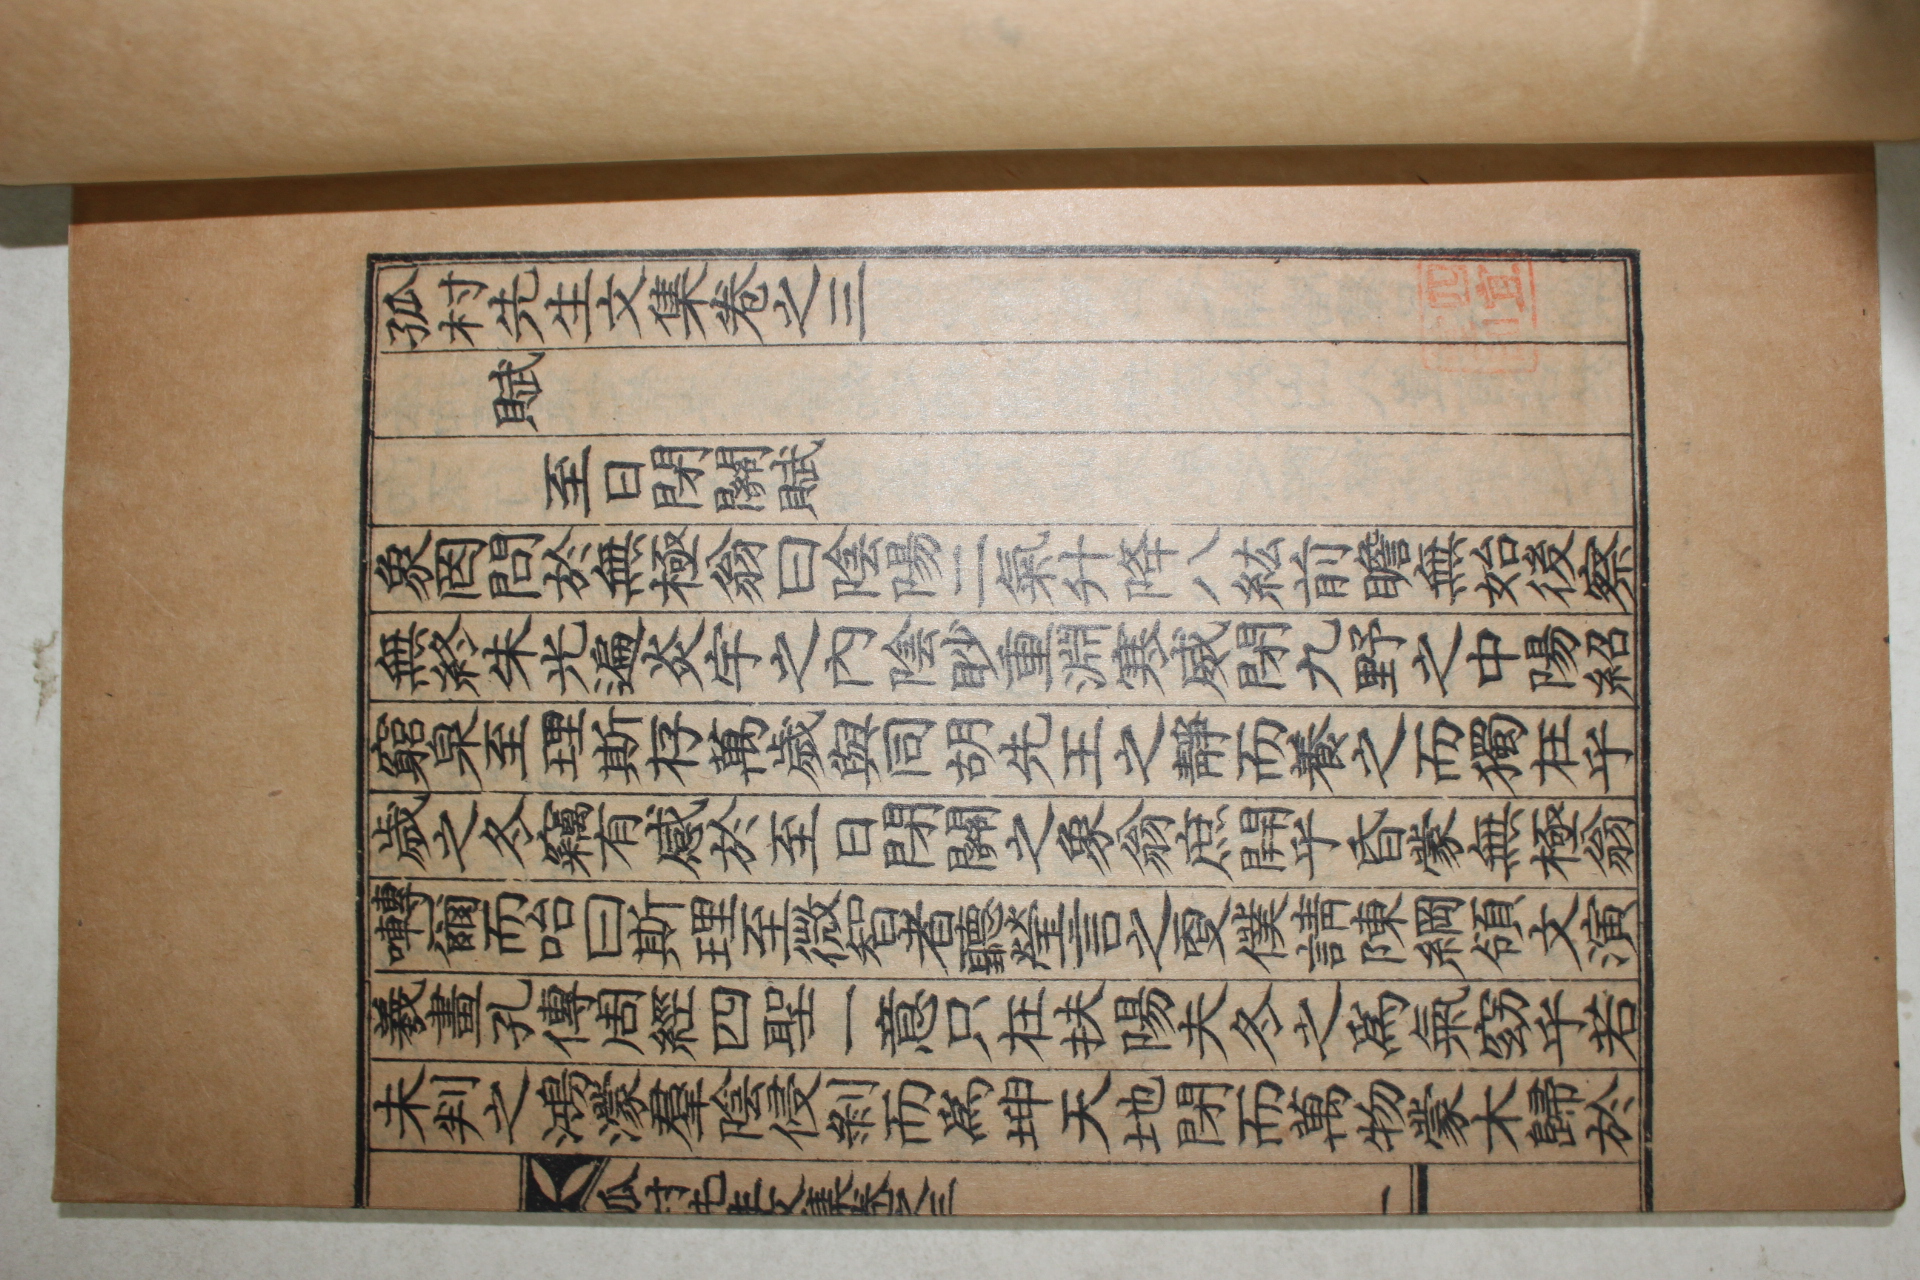 孤村先生文集卷之三
賦
至日閉關賦
象罔問於無極翁曰陰陽二氣升降八紘前瞻無始後察
無終朱光遍炎宇之內陰眇重淵寒威閉九野之中陽紹
窮泉至理斯存萬歲與同胡先王之靜而養之而獨在乎
歲之冬竊有感於至日閉關之象翁庶開乎昏蒙無極翁
囀爾而咍曰斯理至微智者聽瑩言之更僕請陳綱領文演
羲畫孔傳周經四聖一意只在扶陽夫冬之爲氣窈乎若
未判之鴻濛羣陰侵剝而爲坤天地閉而萬物蒙木歸於
孤村先生文集卷之三 一